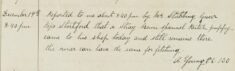 December 19th Reported to me about 8.20 pm by Mr Stebbing Gun
8.20 pm Bps Stortford that a stray brown spaniel bitch puppy
came to his shop today and still remains there
the owner can have the same for fetching
A. Young P.C. 150